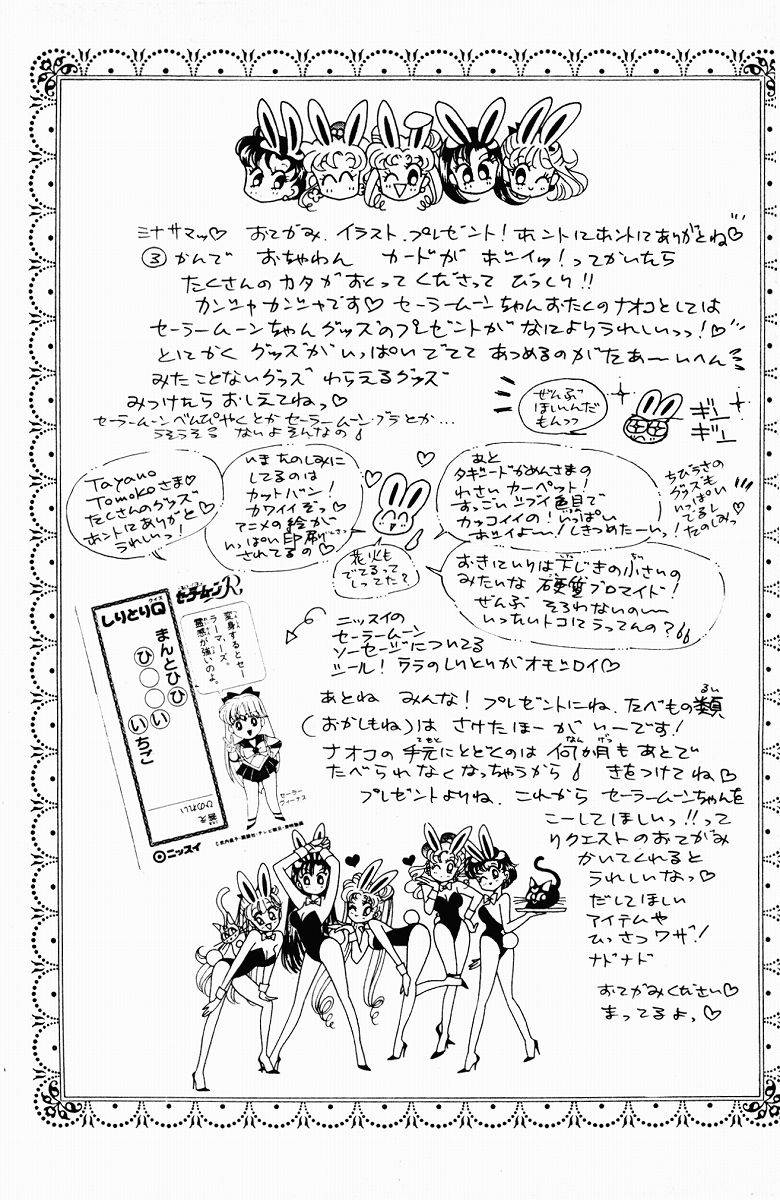 ミナサマッ♡ おてがみ、イラスト、プレゼント！ホントにホントにありがとね♡
③かんで おちゃわん カードが ホシイッ！ってかいたら
たくさんのカタがおくってくださって びっくり!!
カンシャカンシャです♡ セーラームーンちゃんおたくのナオコとしては
セーラームーンちゃんグッズのプレゼントがなによりうれしいっっ！♡
とにかく グッズがいっぱいでてて あつめるのがたぁーいへん
みたことないグッズ わらえるグッズ
みつけたら おしえてねっ♡
セーラームーンべんぴやくとか セーラームーンブラとか…
うそうそ ないよそんなの
ぜんぶ
ほしいんだ
もんっっ
ギュー
ギュー
Tayano
Tomokoさま♡
たくさんのグッズ
ホントにありがと
うれしいっ！
いまたのしみに
してるのは
カットバン！
カワイイぞっ♡
アニメの絵が
いっぱい印刷
されてるの♡
花火も
でてるって
しってた？
あと
タキシードかめんさまの
カーペット！
すっごいシブイ色目で
カッコイイの！いっぱい
ホシイよー！しきつめたーいっ！
ちびうさの
グッズも
いっぱい
でるし
たのしみっ♡
おきにいりは 下じきの小さいの
みたいな 硬質ブロマイド！
ぜんぶ そろわないの〜
いったいトコにうってんの？
セーラームーンR
しりとりQ
クイズ
まんとひひ
ひ○○い
いちご
答え
ひのれい
変身するとセー
ラーマーズ。
霊感が強いのよ。
セーラー
ヴィーナス
©武内直子・講談社・テレビ朝日・東映動画
ニッスイ
ニッスイの
セーラームーン
ソーセージについてる
シール！ウラのしりとりがオモシロイ♡
あとね みんな！プレゼントにね、たべもの類
るい
(おかしもね)は さけたほーがいーです！
ナオコの手元にとどくのは 何か月もあとで
てもと
なん
げつ
たべられなくなっちゃうから きをつけてね♡
プレゼントよりね、これから セーラームーンちゃんを
こーしてほしいっ!!って
リクエストのおてがみ
かいてくれると
うれしいなっ♡
だしてほしい
アイテムや
ひっさつワザ！
ナドナド
おてがみください♡
まってるよっ♡